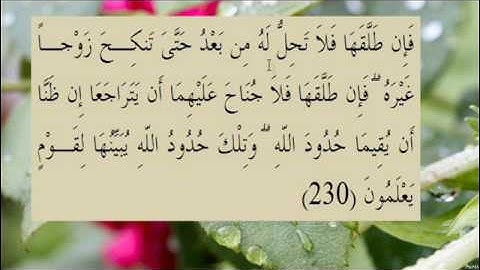 فَإِن طَلَّقَهَا فَلاَ تَحِلُّ لَهُ مِن بَعْدُ حَتَّىَ تَنكِـحَ زَوْجـاً
غَيْرَهُ ۗ فَإِن طَلَّقَهَا فَلاَ جُنَاحَ عَلَيْهِمَا أَن يَتَرَاجَعَا إِن ظَنَّا
أَن يُقِيمَا حُدُودَ اللّهِ ۗ وَتِلْكَ حُدُودُ اللّهِ يُبَيِّنُهَا لِقَـوْمٍ
يَعْلَمُونَ (230)